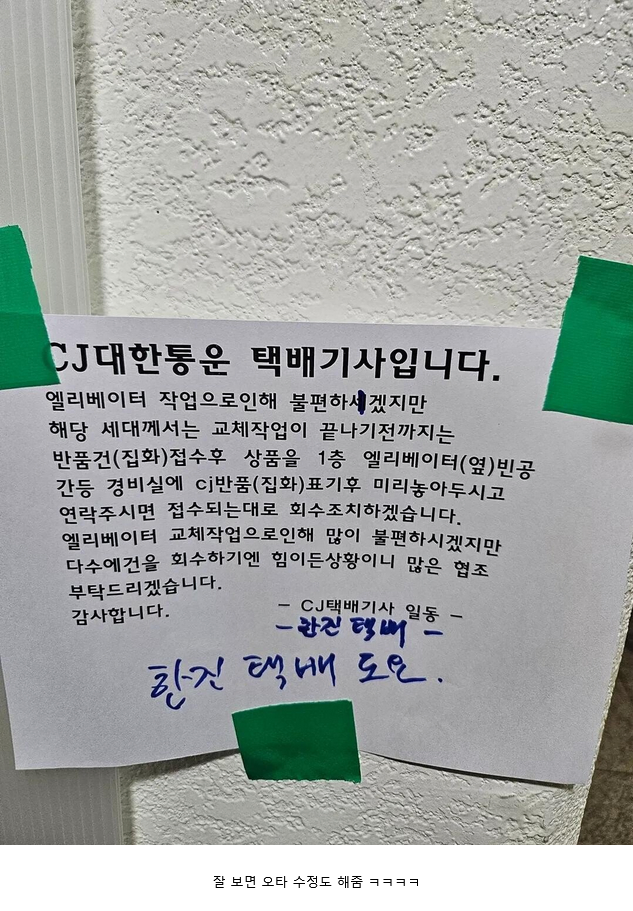 CJ대한통운 택배기사입니다.
엘리베이터 작업으로인해 불편하시겠지만
해당 세대께서는 교체작업이 끝나기전까지는
반품건(집화)접수후 상품을 1층 엘리베이터(옆)빈공
간등 경비실에 cj반품(집화)표기후 미리놓아두시고
연락주시면 접수되는대로 회수조치하겠습니다.
엘리베이터 교체작업으로인해 많이 불편하시겠지만
다수에건을 회수하기엔 힘이든상황이니 많은 협조
부탁드리겠습니다.
감사합니다.
- CJ택배기사 일동 -
- 한진 택배 -
한진 택배 도요.
잘 보면 오타 수정도 해줌 ㅋㅋㅋㅋ